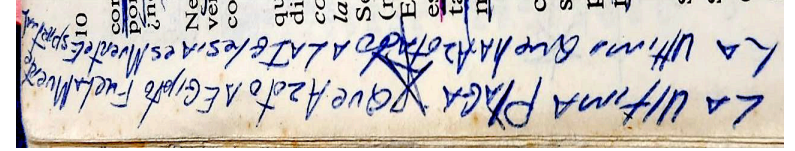 LA UltimA PlAGA Que Azoto A EGipto Fue lA Muerte
LA Ultima Que hA AzotADO A LA IGlesiA es Muerte Espiritual
10